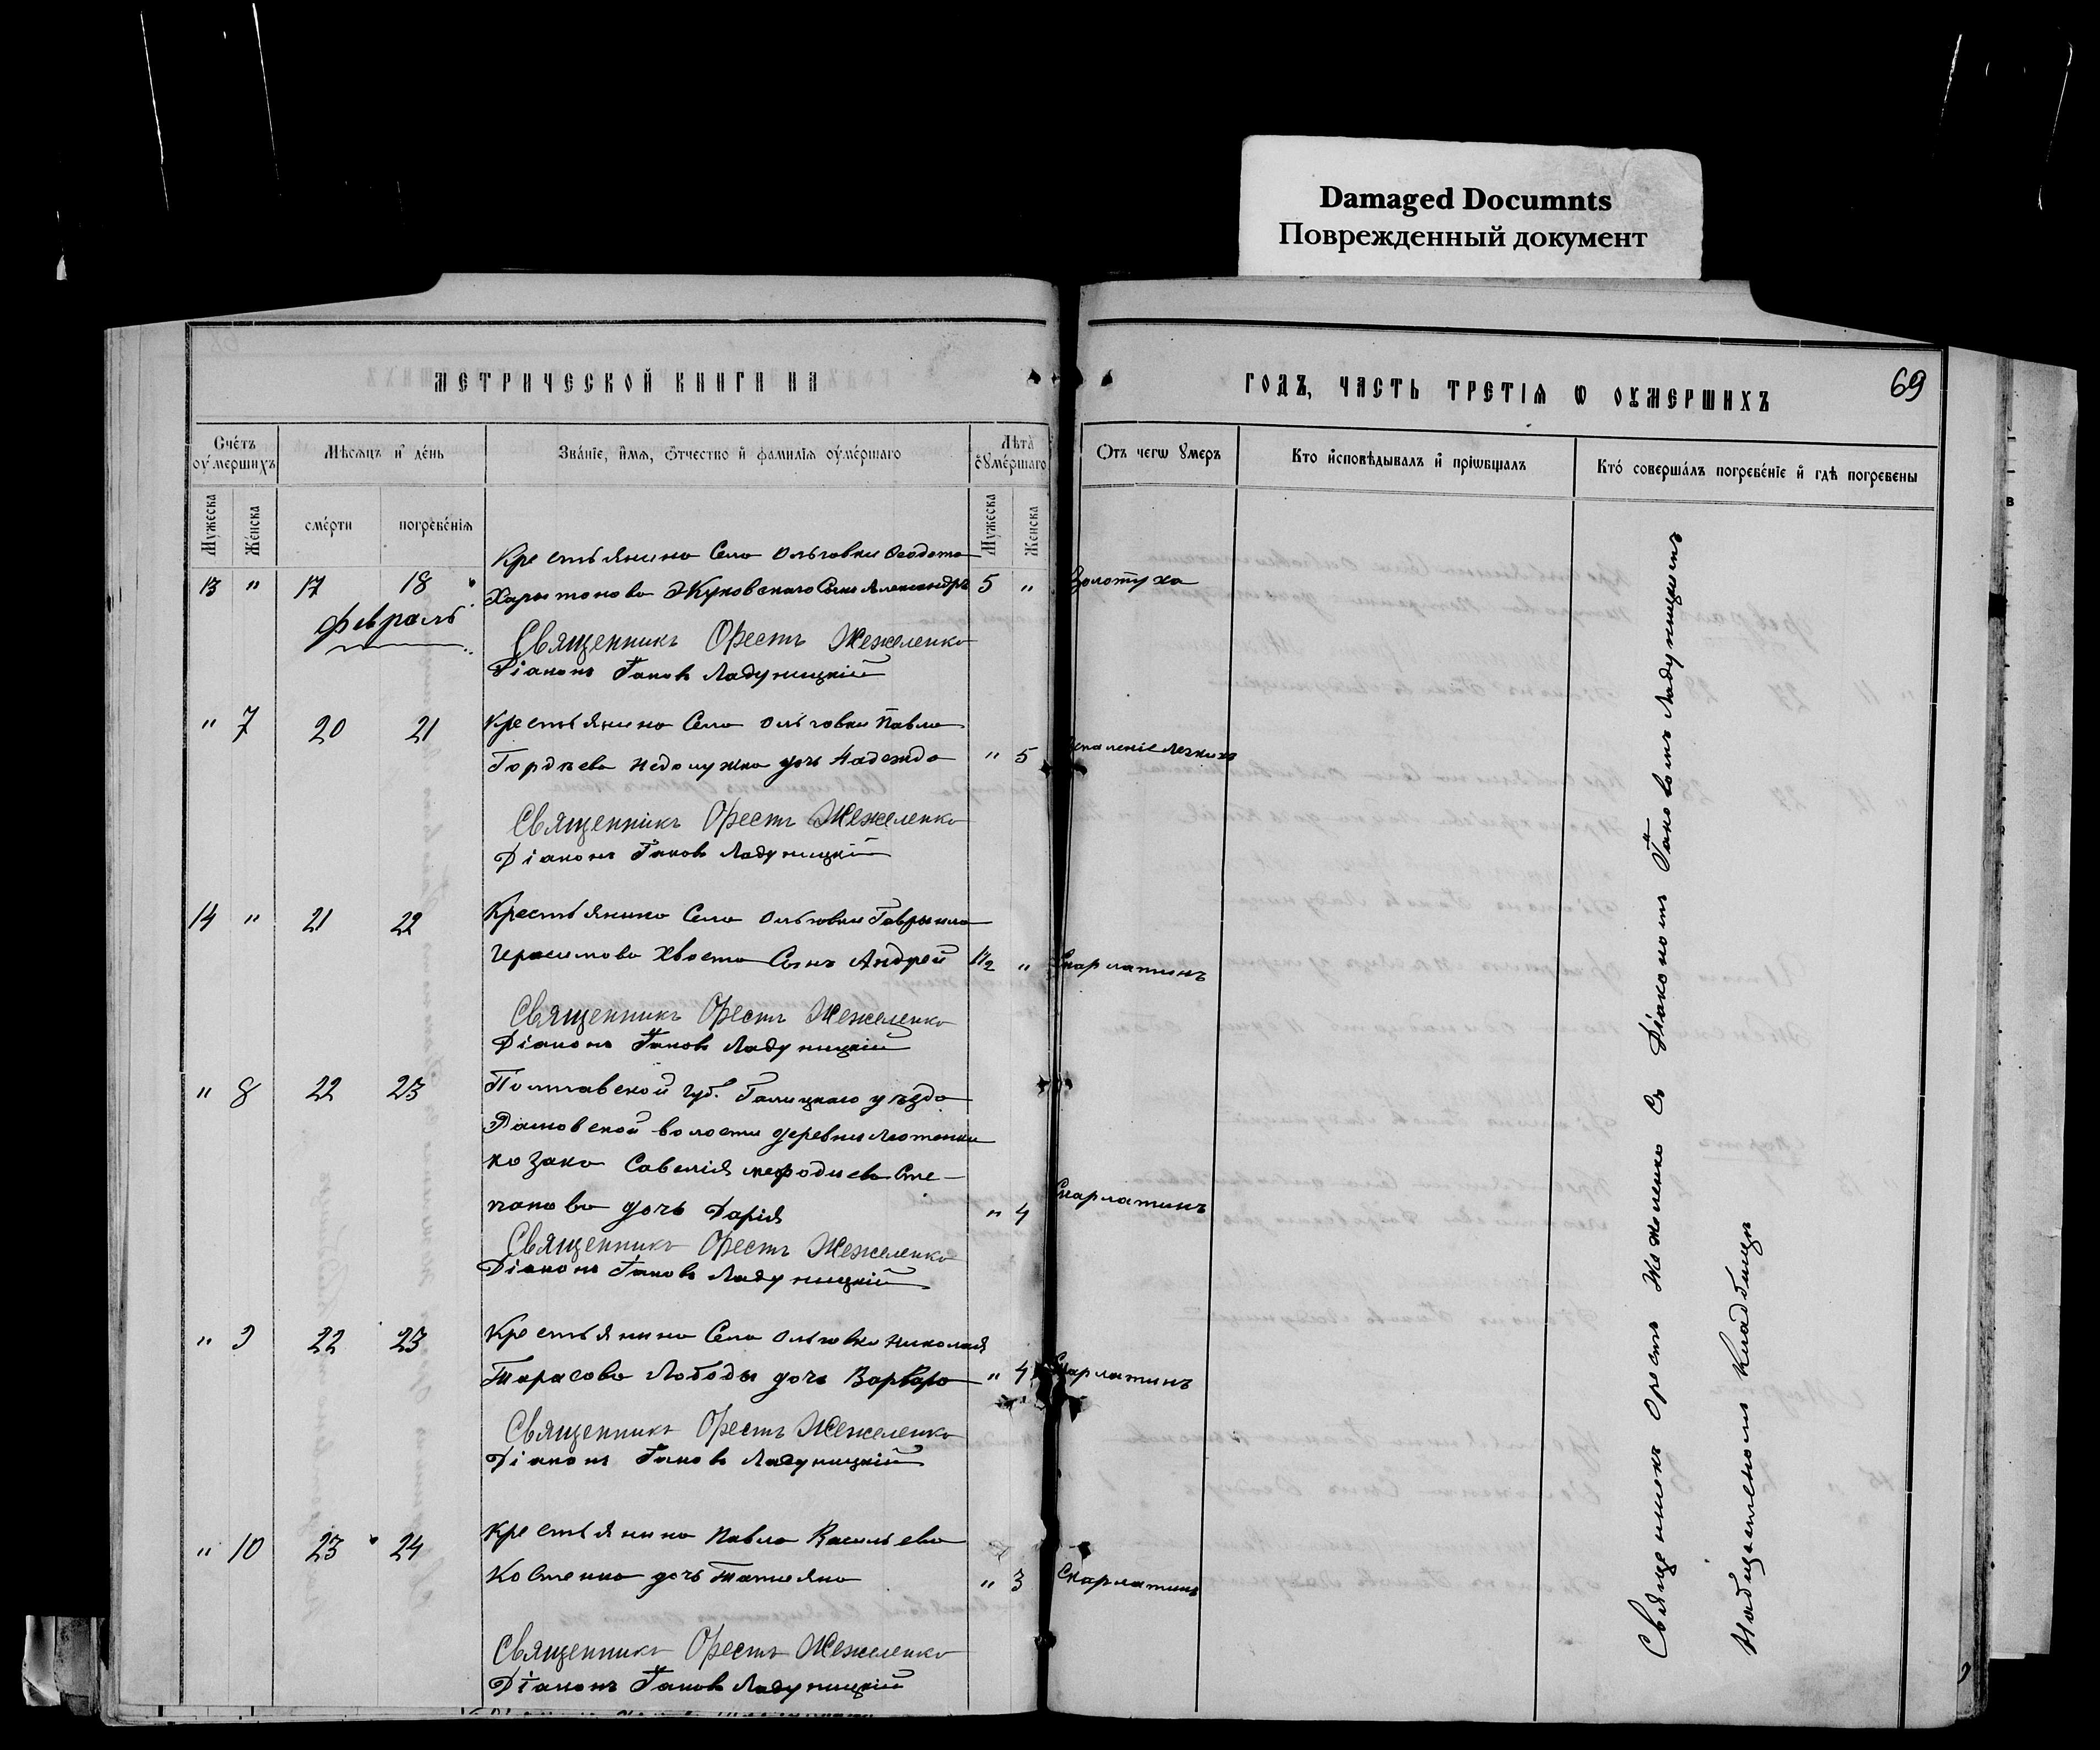 Damaged Documnts
Поврежденный документ
МЕТРИЧЕСКОЙ КНИГИ НА
ГОДЪ, ЧАСТЬ ТРЕТІѦ Ѡ ОУМЕРШИХЪ
69
Счетъ оумершихъ
Мѣсяцъ и день
Званіе, имя, отчество и фамилія оумершаго
Лѣта оумершаго
Отъ чегѡ умеръ
Кто исповѣдывалъ и пріѡбщалъ
Кто совершалъ погребеніе и гдѣ погребены
Мужеска
Женска
смерти
погребенія
Мужеска
Женска
Крестьянина Села Ольговки Феодота
13 " 17 18 Харитонова Жуковскаго Сынъ Александръ 5 " Золотуха
Февраль
Священникъ Орестъ Жежеленко
Діаконъ Іаковъ Ладуницкій
" 7 20 21 Крестьянина Села Ольговки Павла
Гордѣева Недолужка дочь Надежда " 5 Воспаленіе Легкихъ
Священникъ Орестъ Жежеленко
Діаконъ Іаковъ Ладуницкій
14 " 21 22 Крестьянина Села Ольговки Гавриила
Герасимова Хвоста Сынъ Андрей 1½ " Скарлатинъ
Священникъ Орестъ Жежеленко
Діаконъ Іаковъ Ладуницкій
" 8 22 23 Полтавской губ. уѣзда
волости деревни Лютеньки
козака Савелія Мефодиева Сте-
панова дочь Дарія " 4 Скарлатинъ
Священникъ Орестъ Жежеленко
Діаконъ Іаковъ Ладуницкій
" 9 22 23 Крестьянина Села Ольговки Николая
Тарасова Лободы дочь Варвара " 4 Скарлатинъ
Священникъ Орестъ Жежеленко
Діаконъ Іаковъ Ладуницкій
" 10 23 24 Крестьянина Павла Васильева
Костенка дочь Татіяна " 3 Скарлатинъ
Священникъ Орестъ Жежеленко
Діаконъ Іаковъ Ладуницкій
Священникъ Орестъ Жежеленко Съ Діакономъ Іаковомъ Ладуницкимъ
На общественномъ Кладбищѣ